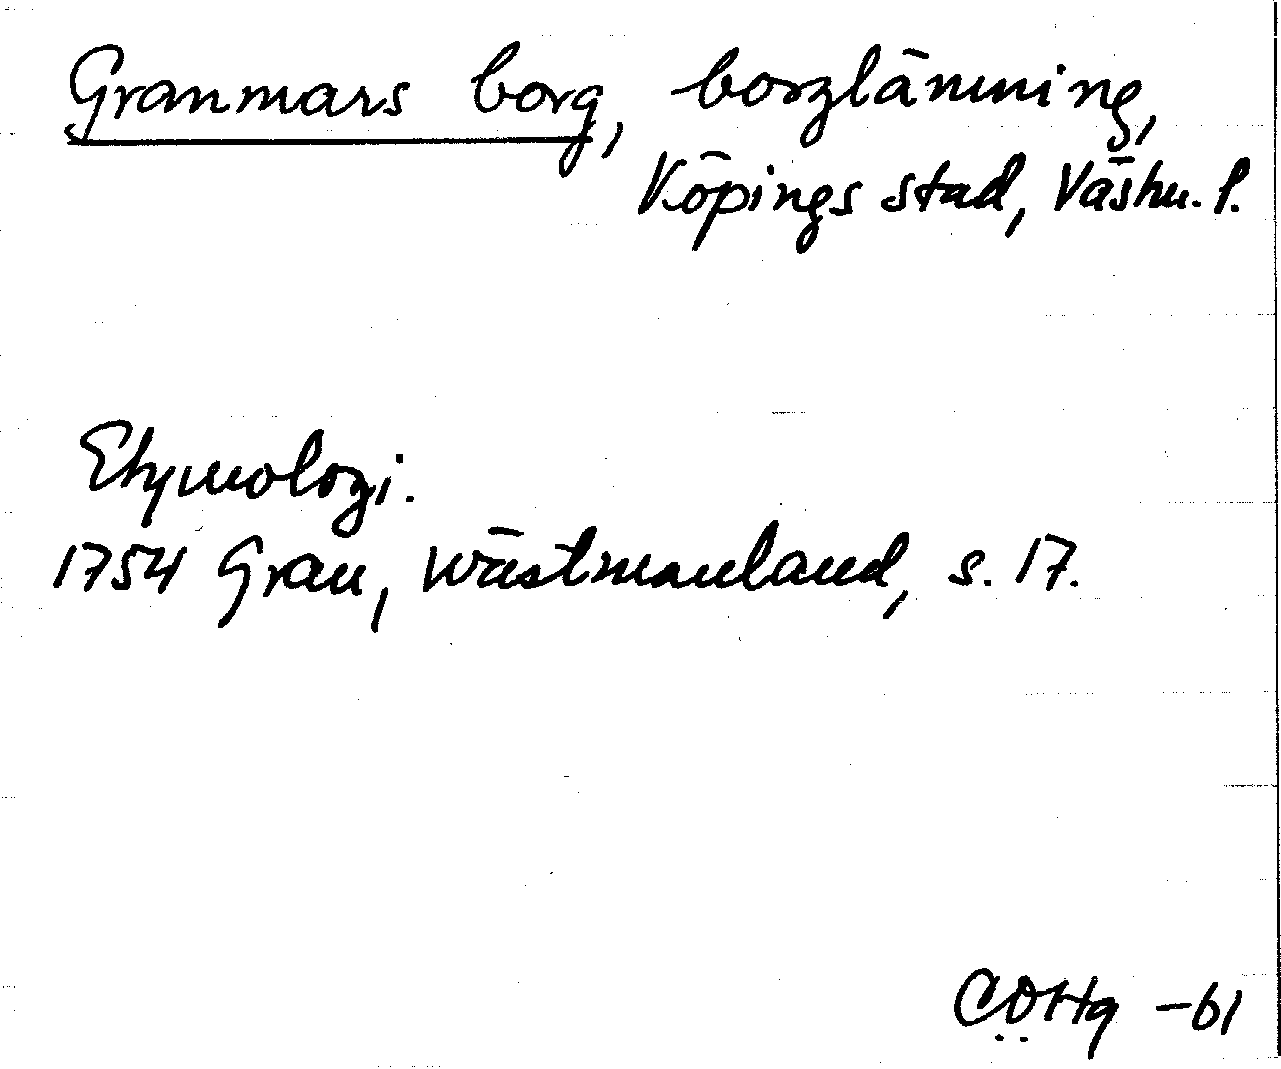 Granmars borg, borglämning,
Köpings stad, Västm. l.
Etymologi.
1754 Grau, Wästmanland, s. 17.
CÖHg -61